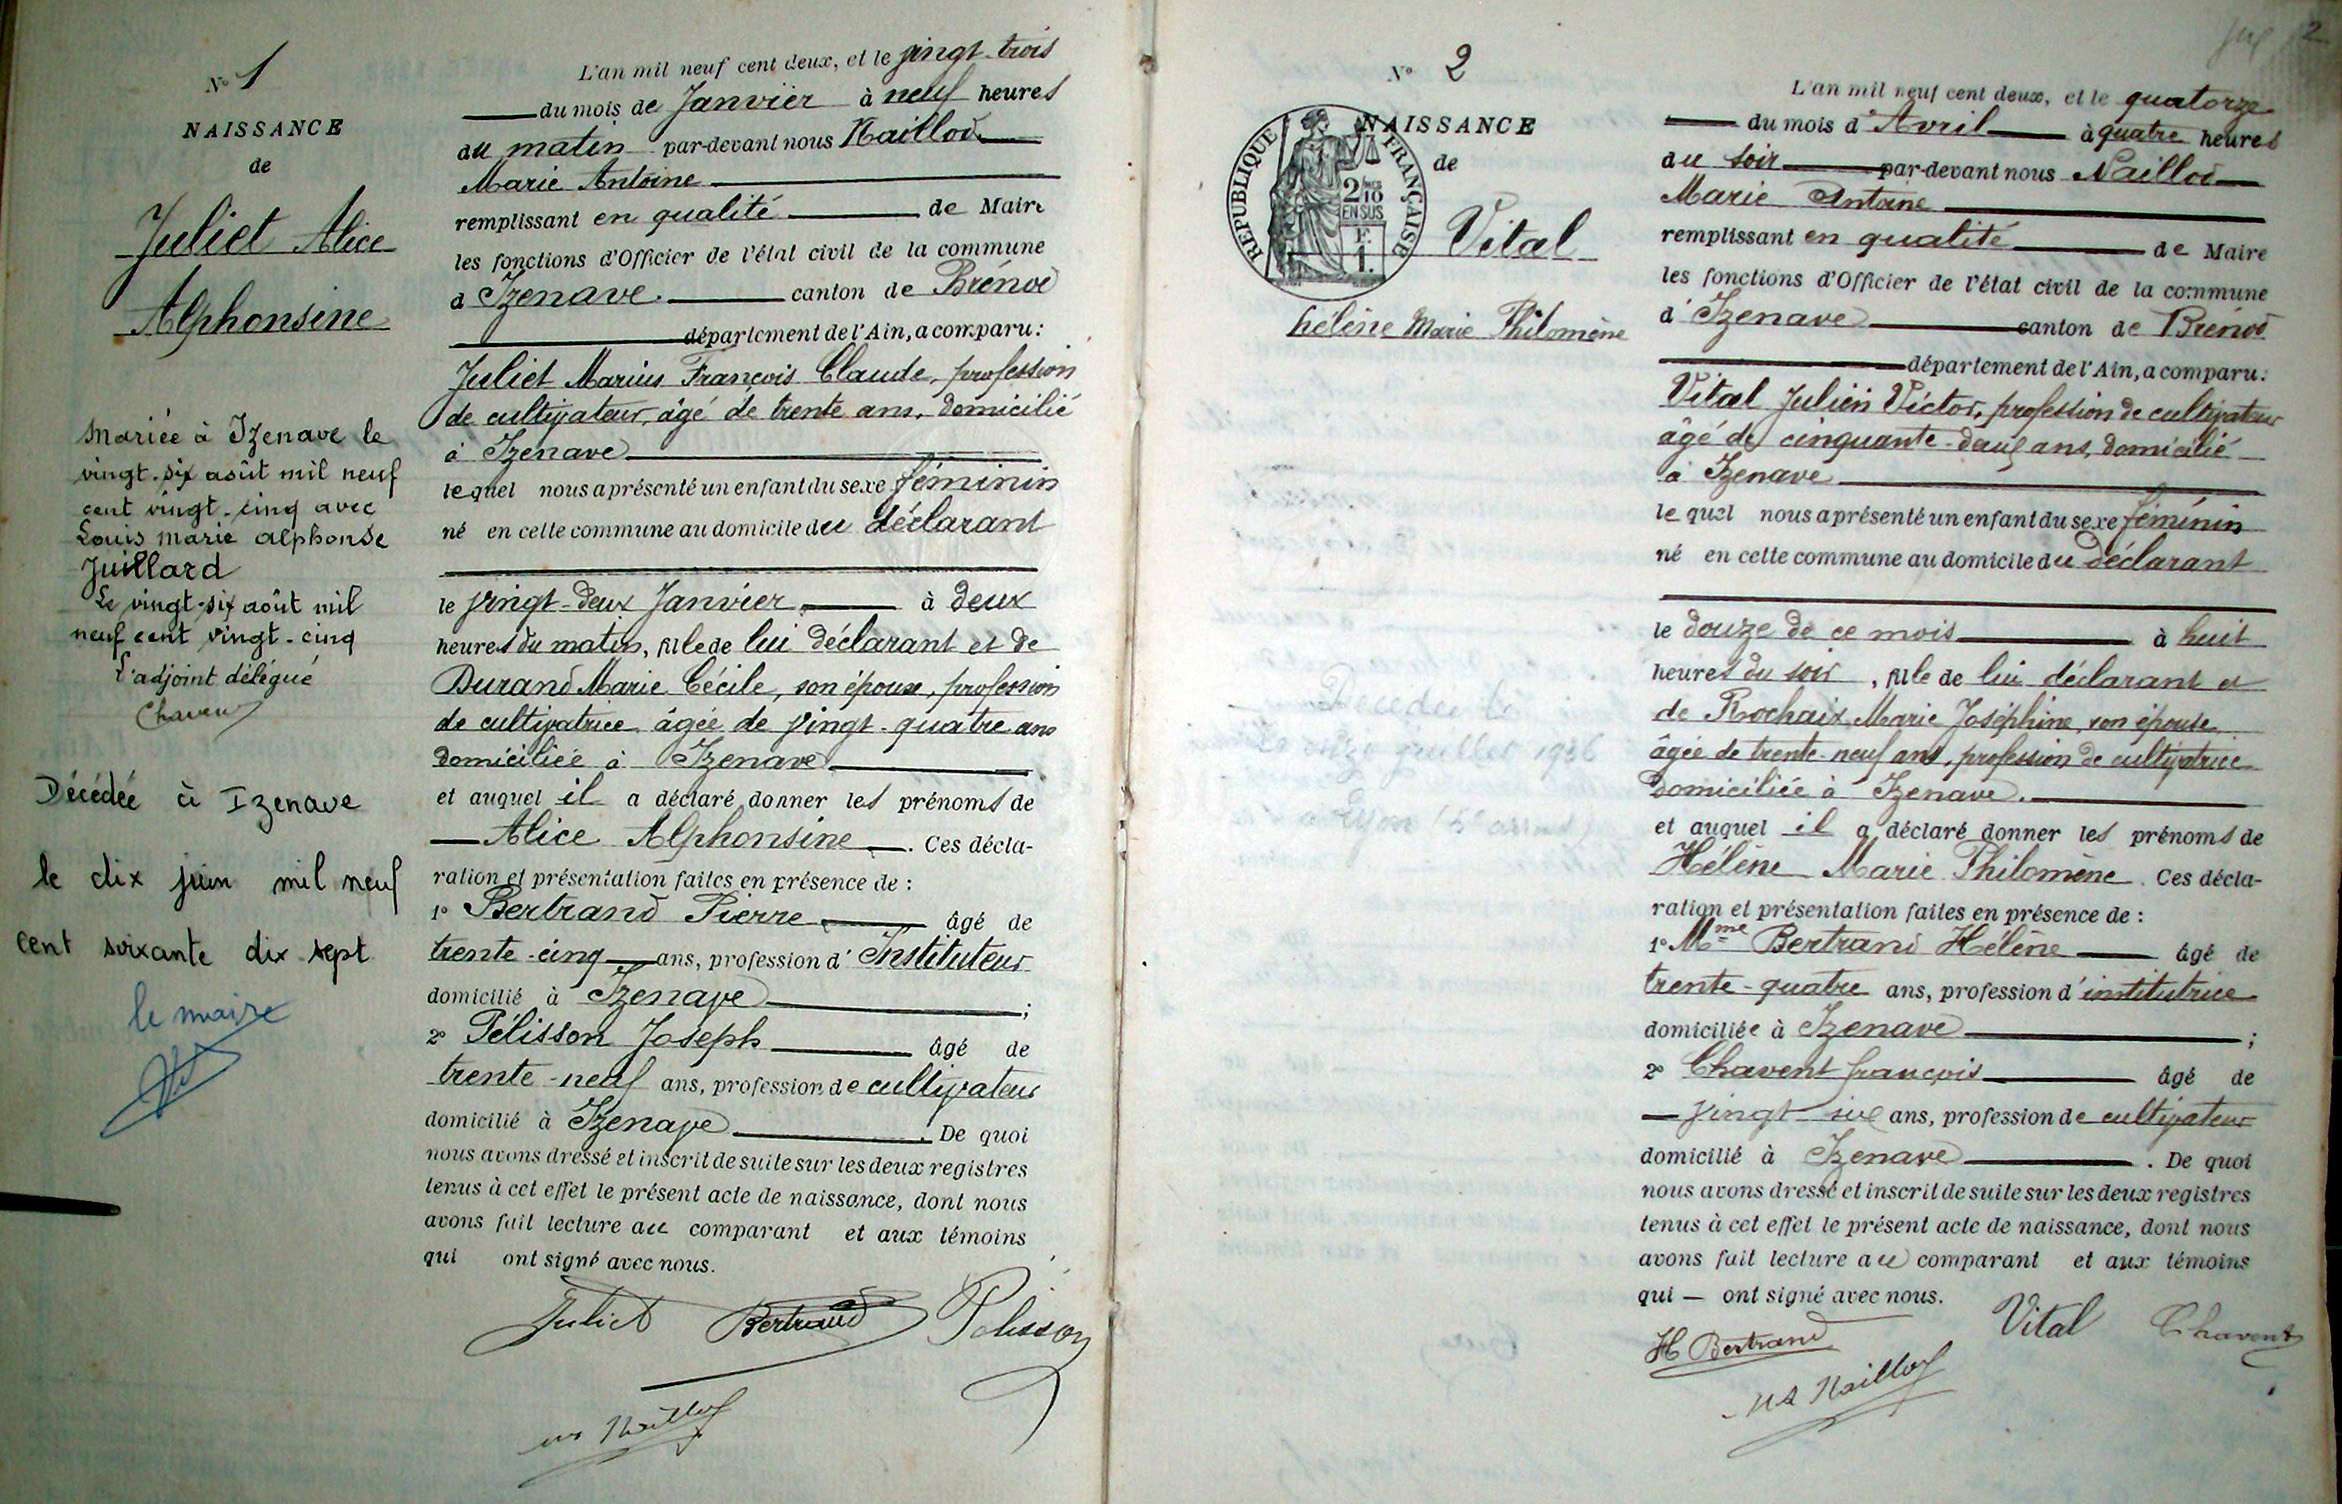 N° 1
NAISSANCE
de
Juliet Alice
Alphonsine
Mariée à Izenave le
vingt-six août mil neuf
cent vingt-cinq avec
Louis Marie Alphonse
Juillard
Le vingt-six août mil
neuf cent vingt-cinq
L'adjoint délégué
Chavent
Décédée à Izenave
le dix juin mil neuf
cent soixante dix sept
le maire
L'an mil neuf cent deux, et le vingt-trois
du mois de Janvier à neuf heures
du matin par-devant nous Naillod
Marie Antoine
remplissant en qualité de Maire
les fonctions d'Officier de l'état civil de la commune
d'Izenave canton de Brénod
département de l'Ain, a comparu:
Juliet Marius François Claude, profession
de cultivateur, âgé de trente ans, domicilié
à Izenave
lequel nous a présenté un enfant du sexe féminin
né en cette commune au domicile du déclarant
le vingt-deux Janvier à deux
heures du matin, fille de lui déclarant et de
Durand Marie Cécile, son épouse, profession
de cultivatrice âgée de vingt-quatre ans
domiciliée à Izenave
et auquel il a déclaré donner les prénoms de
Alice Alphonsine. Ces décla-
ration et présentation faites en présence de :
1° Bertrand Pierre âgé de
trente-cinq ans, profession d'Instituteur
domicilié à Izenave ;
2° Pélisson Joseph âgé de
trente-neuf ans, profession de cultivateur
domicilié à Izenave. De quoi
nous avons dressé et inscrit de suite sur les deux registres
tenus à cet effet le présent acte de naissance, dont nous
avons fait lecture au comparant et aux témoins
qui ont signé avec nous.
Juliet Bertrand Pélisson
MA Naillod
2
N° 2
NAISSANCE
de
REPUBLIQUE FRANÇAISE
2/10
EN SUS
F.
1.
Vital
hélène Marie Philomène
L'an mil neuf cent deux, et le quatorze
du mois d'Avril à quatre heures
du soir par-devant nous Naillod
Marie Antoine
remplissant en qualité de Maire
les fonctions d'Officier de l'état civil de la commune
d'Izenave canton de Brénod
département de l'Ain, a comparu:
Vital Julien Victor, profession de cultivateur
âgé de cinquante-deux ans, domicilié
à Izenave
lequel nous a présenté un enfant du sexe féminin
né en cette commune au domicile du déclarant
le douze de ce mois à huit
heures du soir, fille de lui déclarant et
de Rochaix Marie Joséphine, son épouse
âgée de trente-neuf ans, profession de cultivatrice
domiciliée à Izenave.
et auquel il a déclaré donner les prénoms de
Hélène Marie Philomène. Ces décla-
ration et présentation faites en présence de :
1° Mme Bertrand Hélène âgé de
trente-quatre ans, profession d'institutrice
domiciliée à Izenave ;
2° Chavent françois âgé de
vingt-six ans, profession de cultivateur
domicilié à Izenave. De quoi
nous avons dressé et inscrit de suite sur les deux registres
tenus à cet effet le présent acte de naissance, dont nous
avons fait lecture au comparant et aux témoins
qui — ont signé avec nous.
H Bertrand Vital Chavent
MA Naillod